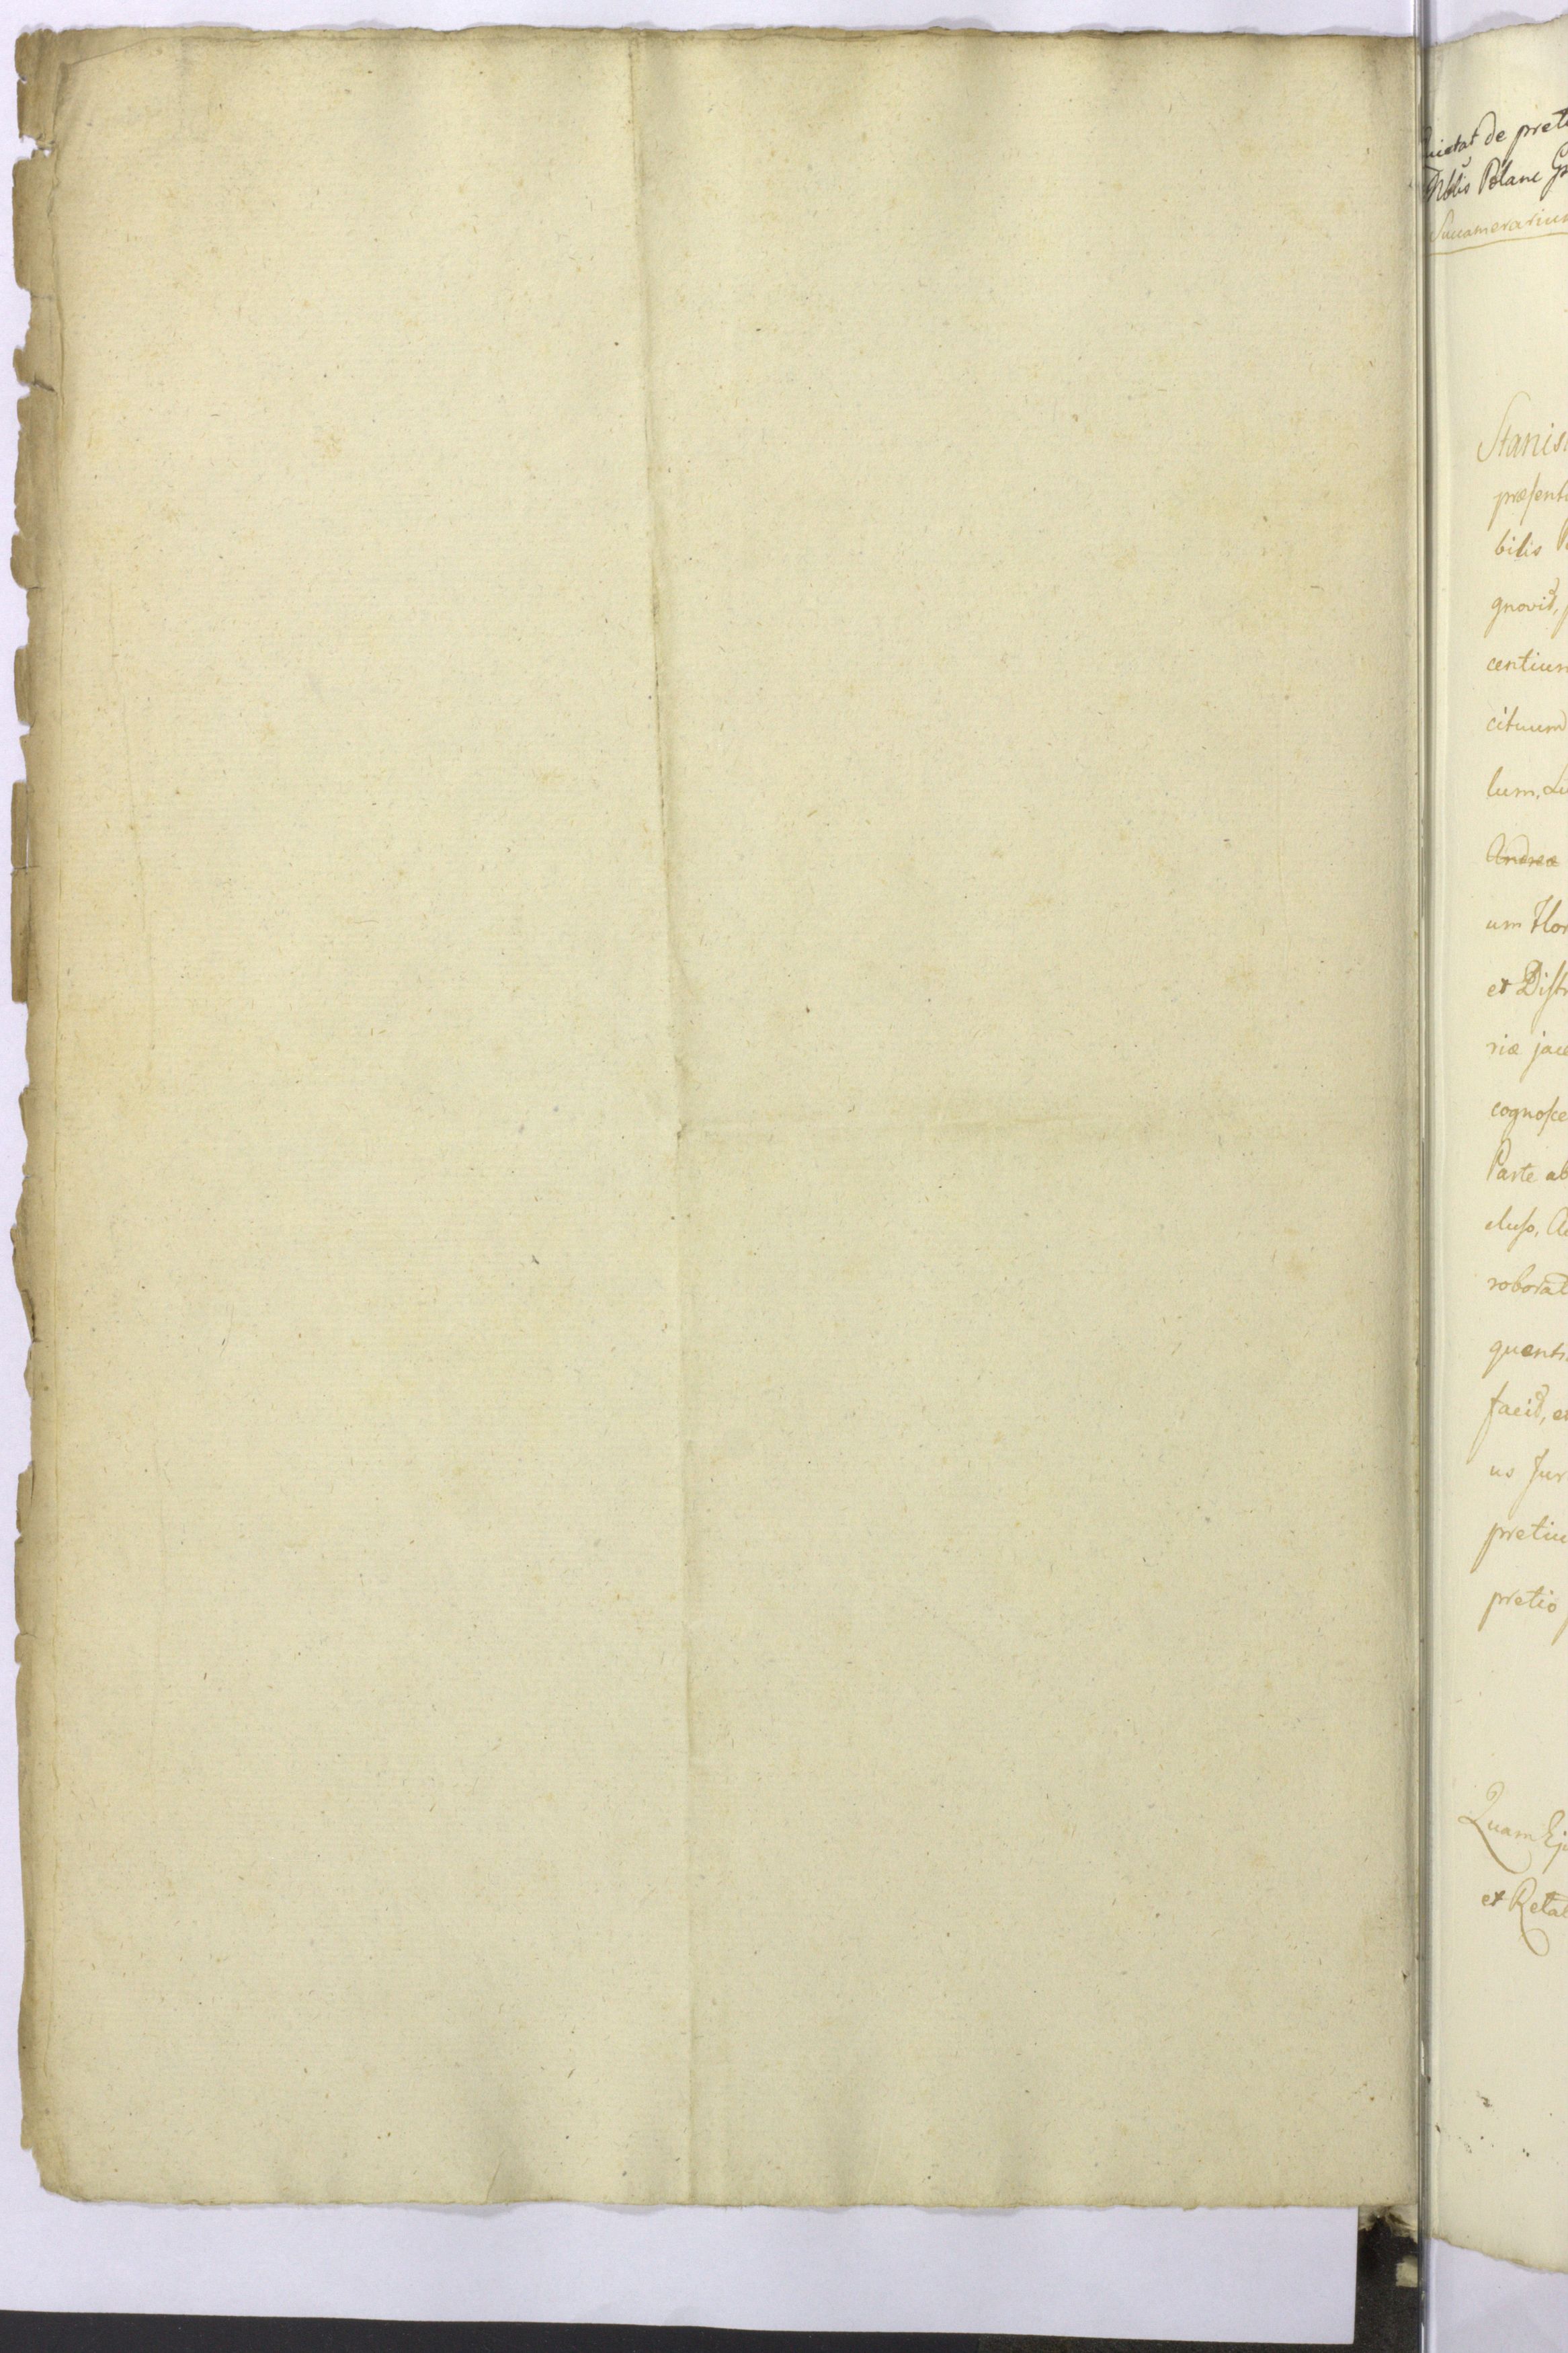 de pret
Nblis Polane
Succamerarius
Stanis
præsent
bilis
gnovit,
centium
cituum
lum, Lu
Andreæ
um Flor
et Distr
riæ jace
cognosce
Parte ab
cluso, A
roborat
quent
facit, et
us Jur
pretiu
pretio
Quam Ej
et Retal